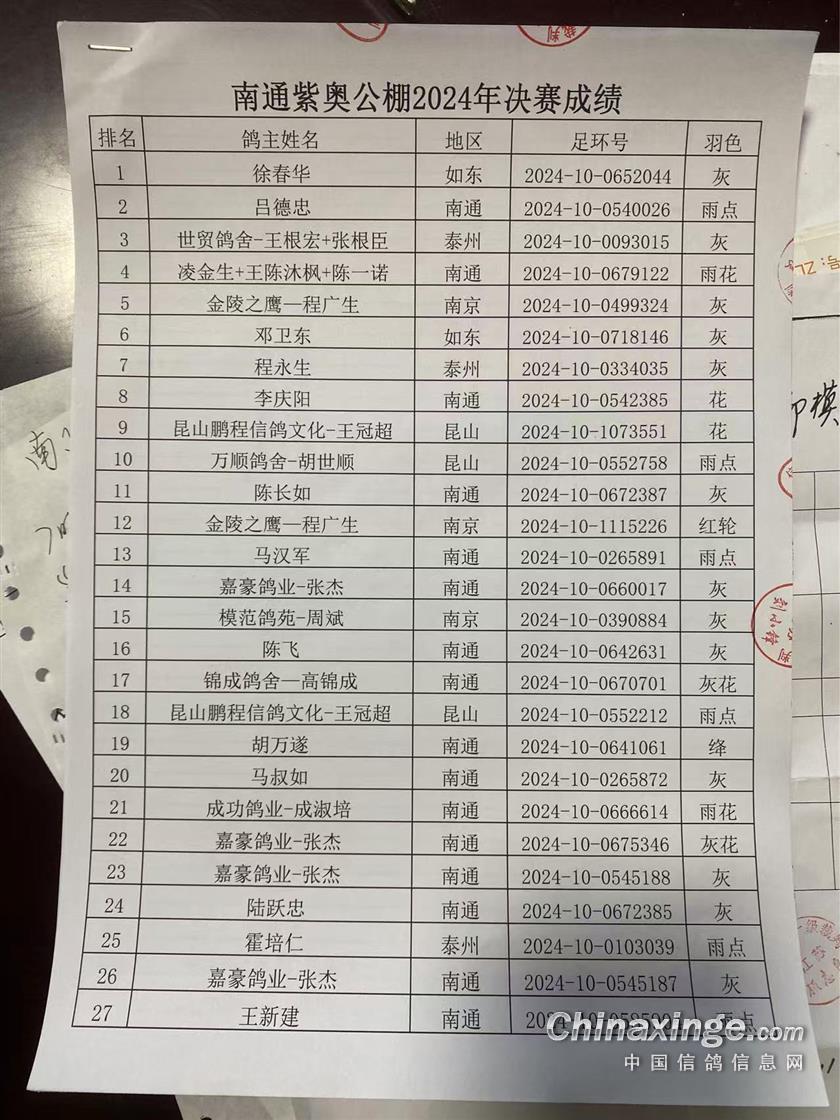 南通紫奥公棚2024年决赛成绩
排名 鸽主姓名 地区 足环号 羽色
1 徐春华 如东 2024-10-0652044 灰
2 吕德忠 南通 2024-10-0540026 雨点
3 世贸鸽舍-王根宏+张根臣 泰州 2024-10-0093015 灰
4 凌金生+王陈沐枫+陈一诺 南通 2024-10-0679122 雨花
5 金陵之鹰—程广生 南京 2024-10-0499324 灰
6 邓卫东 如东 2024-10-0718146 灰
7 程永生 泰州 2024-10-0334035 灰
8 李庆阳 南通 2024-10-0542385 花
9 昆山鹏程信鸽文化-王冠超 昆山 2024-10-1073551 花
10 万顺鸽舍-胡世顺 昆山 2024-10-0552758 雨点
11 陈长如 南通 2024-10-0672387 灰
12 金陵之鹰—程广生 南京 2024-10-1115226 红轮
13 马汉军 南通 2024-10-0265891 雨点
14 嘉豪鸽业-张杰 南通 2024-10-0660017 灰
15 模范鸽苑-周斌 南京 2024-10-0390884 灰
16 陈飞 南通 2024-10-0642631 灰
17 锦成鸽舍—高锦成 南通 2024-10-0670701 灰花
18 昆山鹏程信鸽文化-王冠超 昆山 2024-10-0552212 雨点
19 胡万遂 南通 2024-10-0641061 绛
20 马叔如 南通 2024-10-0265872 灰
21 成功鸽业-成淑培 南通 2024-10-0666614 雨花
22 嘉豪鸽业-张杰 南通 2024-10-0675346 灰花
23 嘉豪鸽业-张杰 南通 2024-10-0545188 灰
24 陆跃忠 南通 2024-10-0672385 灰
25 霍培仁 泰州 2024-10-0103039 雨点
26 嘉豪鸽业-张杰 南通 2024-10-0545187 灰
27 王新建 南通
Chinaxinge.com
中国信鸽信息网